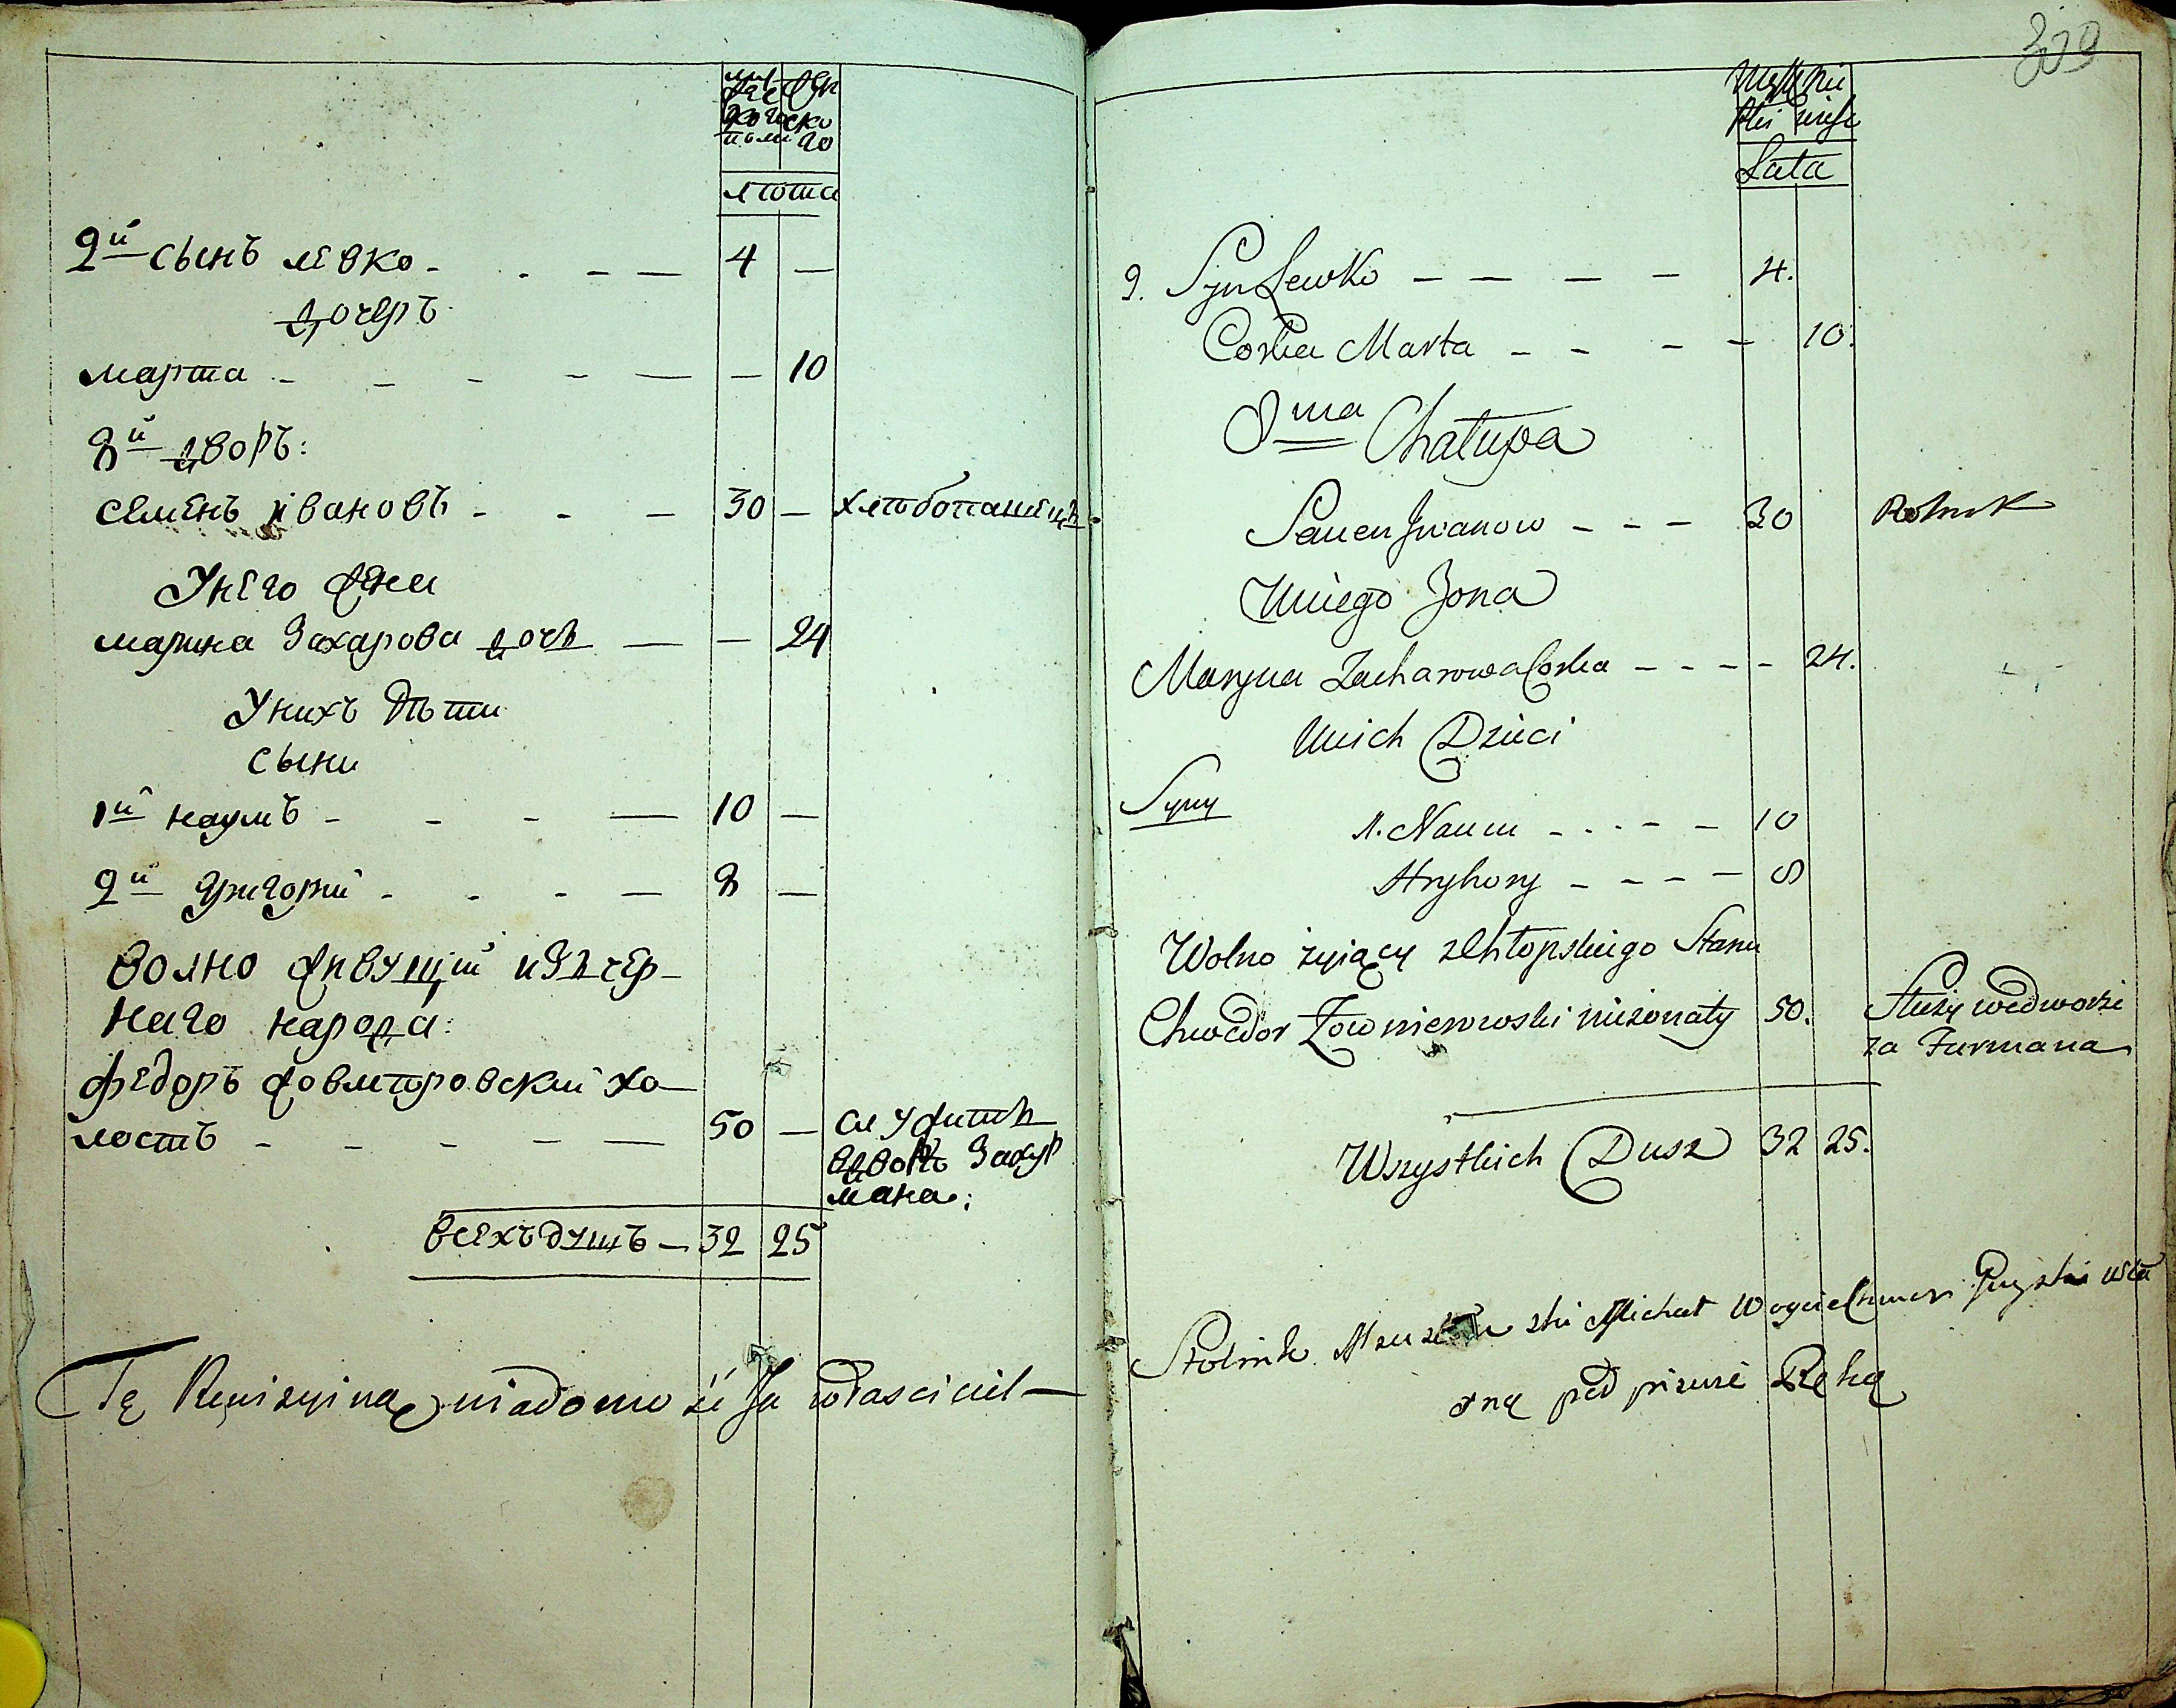 мужескоголи
женского
лѣта
2й сынъ левко - - - — 4 —
дочерь
марта - - - - — — 10
8й дворъ:
семенъ ивановъ - - — 30 — хлѣбопашецъ
У него жена
марина Захарова дочь — — 24
У нихъ дѣти
сыни
1й наумъ - - - — 10 —
2й григорий - - - — 8 —
волно живущий изъ чер-
наго народа:
федоръ жовмѣровский хо-
лостъ - - - — — 50 — служитъ
вдворѣ Зафур
мана:
всехъ душъ — 32 25
Tę Rewizyina wiadomo że Ja własciciel —
309
Męzkii
Lata
2. Syn Lewko — — — — 4.
Corka Marta - - - - 10.
8ma Chałupa
Semen Jwanow - - - 30 Rolnik
Uniego Zona
Maryna Zacharowa Corka - - - - 24.
Unich Dzieci
Syny
1. Naum - - - - - 10
Hryhory - - - - 8
Wolno zyiący zChłopskiego Stanu
Chwedor Zowmierowski niezonaty 50. Służy wedworze
za Furmana
Wszystkich Dusz 32 25.
Stolnik Michał
ną podpisuie Ręką